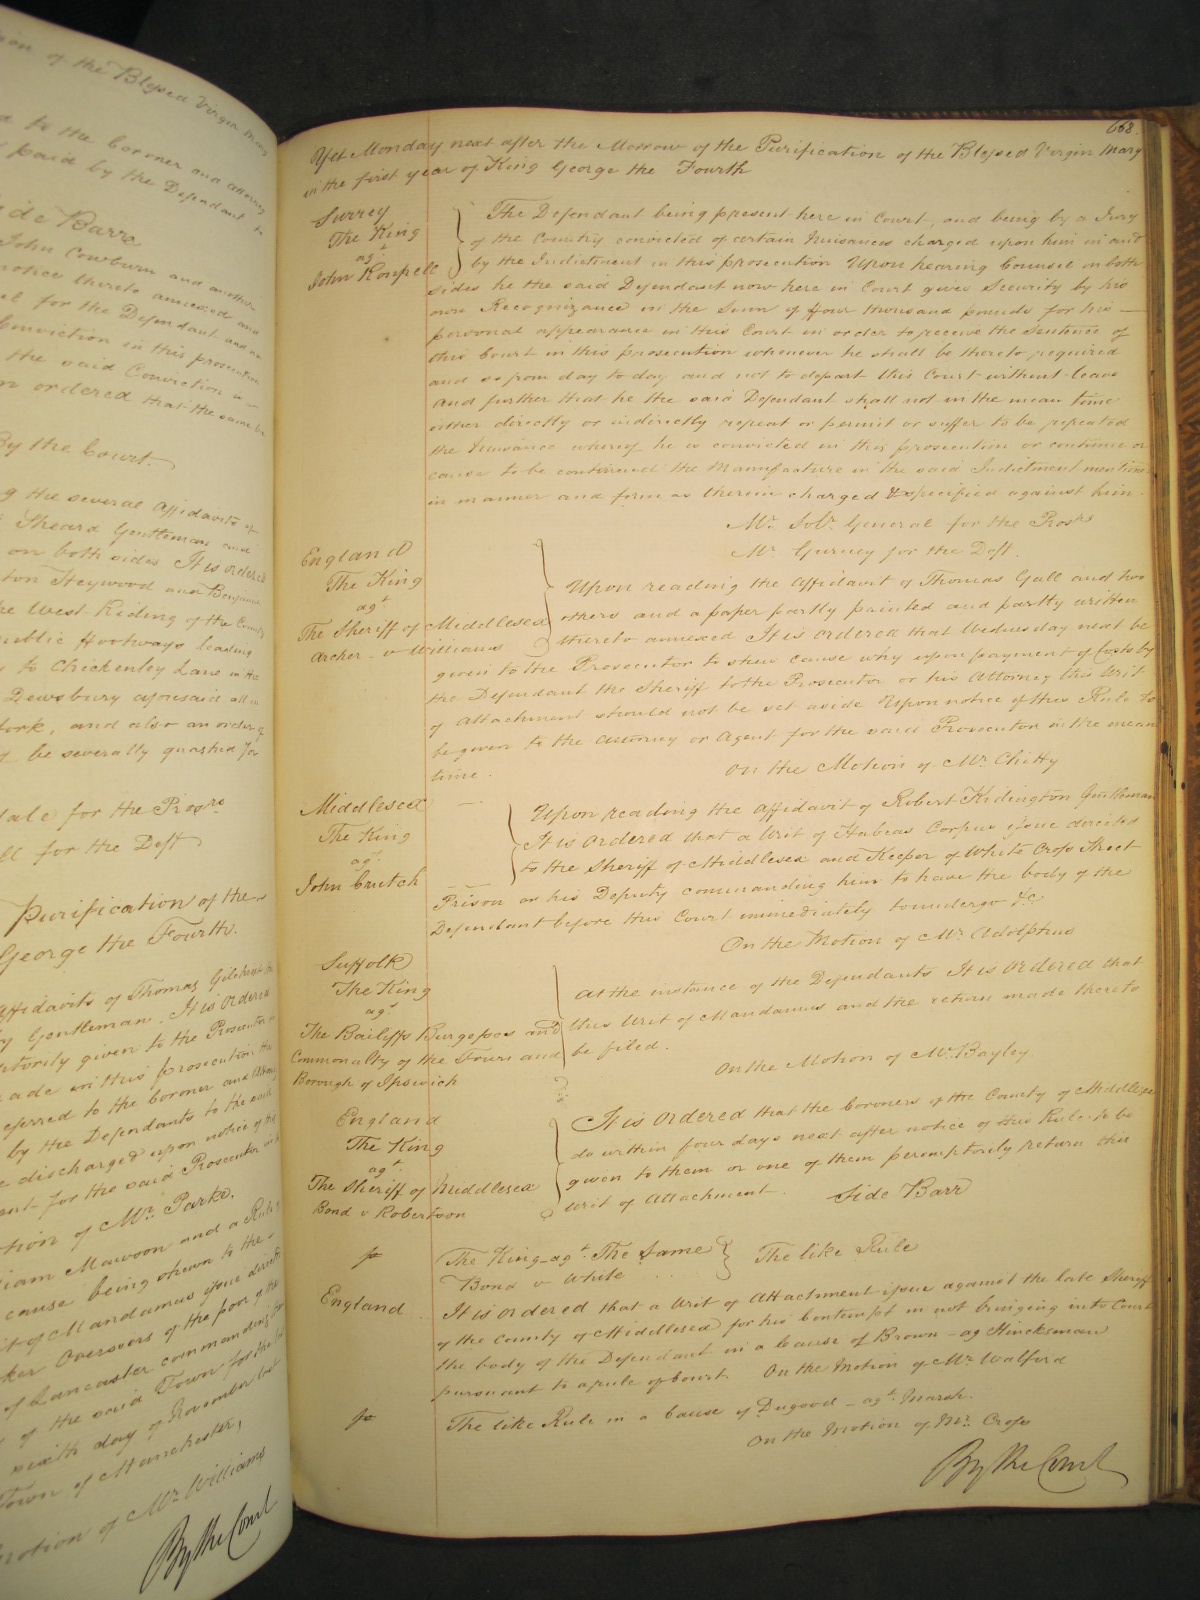 of the Blessed Virgin Mary
to the Coroner and Attorney
paid by the Defendant to
Side Barr
John Cowburn and another
notice thereto annexed and
for the Defendant and on
Conviction in this prosecution
the said Conviction is
ordered that the same be
By the Court
the several Affidavits of
Sheard Gentleman and
on both sides It is ordered
Heywood and Benjamin
the West Riding of the County
public footways leading
to Chickenley Lane in the
Dewsbury aforesaid all in
York, and also an order of
be severally quashed for
for the Prosrs
for the Deft
Purification of the
George the Fourth.
Affidavits of Thomas Gilchrist
Gentleman. It is Ordered
given to the Prosecutor
made in this prosecution
referred to the Coroner and Attorney
by the Defendants to the said
discharged upon notice of this
for the said Prosecutor
Motion of Mr. Parke.
William Mawson and a Rule
cause being shewn to the
Writ of Mandamus issue directed
Overseers of the poor of the
of Lancaster commanding
of the said Town for the
sixth day of November last
Town of Manchester,
Motion of Mr. Williams
By the Court
668.
Yet Monday next after the Morrow of the Purification of the Blessed Virgin Mary
in the first year of King George the Fourth
Surrey
The King
agt
John Roupell
The Defendant being present here in Court, and being by a Jury
of the Country convicted of certain Nuisances charged upon him in and
by the Indictment in this prosecution Upon hearing Counsel on both
sides he the said Defendant now here in Court gives Security by his
own Recognizance in the Sum of four thousand pounds for his
personal appearance in this Court in order to receive the Sentence of
this Court in this prosecution whenever he shall be thereto required
and so from day to day and not to depart this Court without leave
And further that he the said Defendant shall not in the mean time
either directly or indirectly repeat or permit or suffer to be repeated
the Nuisance whereof he is convicted in this prosecution or continue or
cause to be continued the Manufacture in the said Indictment mentioned
in manner and form as therein charged & specified against him.
Mr. Solr. General for the Prosrs
Mr. Gurney for the Deft.
England
The King
agt
The Sheriff of Middlesex
Archer v Williams
Upon reading the Affidavit of Thomas Gall and two
others and a paper partly printed and partly written
thereto annexed It is Ordered that Wednesday next be
given to the Prosecutor to shew cause why upon payment of Costs by
the Defendant the Sheriff to the Prosecutor or his Attorney this Writ
of Attachment should not be set aside Upon notice of this Rule to
be given to the Attorney or Agent for the said Prosecutor in the mean
time.
On the Motion of Mr. Chitty
Middlesex
The King
agt
John Crutch
Upon reading the Affidavit of Robert Kidington Gentleman
It is Ordered that a Writ of Habeas Corpus issue directed
to the Sheriff of Middlesex and Keeper of White Cross Street
Prison or his Deputy commanding him to have the body of the
Defendant before this Court immediately to undergo &c
On the Motion of Mr. Adolphus
Suffolk
The King
agt
The Bailiffs Burgesses and
Commonalty of the Town and
Borough of Ipswich
At the instance of the Defendants It is Ordered that
this Writ of Mandamus and the return made thereto
be filed.
On the Motion of Mr. Bayley.
England
The King
agt
The Sheriff of Middlesex
Bond v Robertson
It is Ordered that the Coroners of the County of Middlesex
do within four days next after notice of this Rule to be
given to them or one of them peremptorily return this
Writ of Attachment.
Side Barr
The King agt. The Same
Bond v White
The like Rule
England
It is Ordered that a Writ of Attachment issue against the late Sheriff
of the County of Middlesex for his Contempt in not bringing into Court
the body of the Defendant in a Cause of Brown ag Hincksman
pursuant to a rule of Court. On the Motion of Mr. Walford
The like Rule in a Cause of Dugood agt. Marsh.
On the Motion of Mr. Cross
By the Court